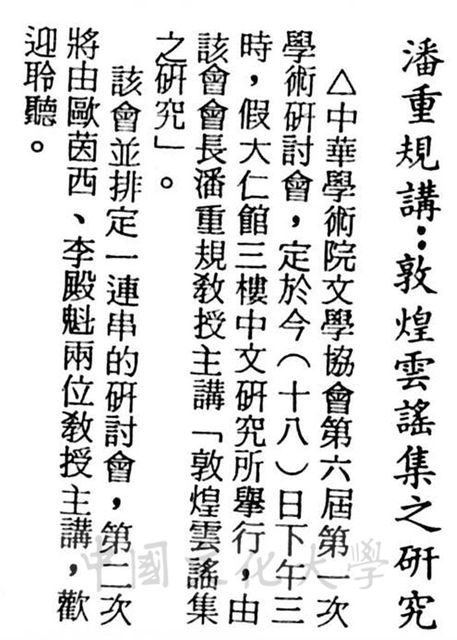 潘重規講：敦煌雲謠集之研究
△中華學術院文學協會第六屆第一次
學術研討會，定於今（十八）日下午三
時，假大仁館三樓中文研究所舉行，由
該會會長潘重規教授主講「敦煌雲謠集
之研究」。
該會並排定一連串的研討會，第二次
將由歐茵西、李殿魁兩位教授主講，歡
迎聆聽。
中國文化大學